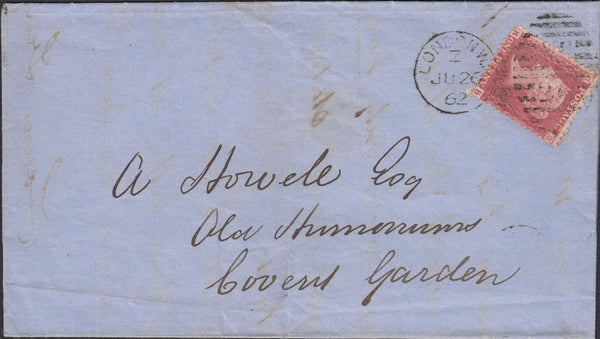 LONDON.W
Z
JU 26
62
POSTAGE
A Howell Esq
Old Humonums
Covent Garden